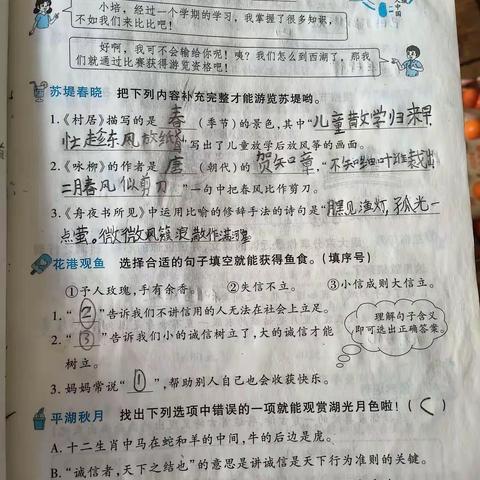 小培,经过一个学期的学习,我掌握了很多知识,
不如我们来比比吧!
好啊,我可不会输给你呢!咦?我们怎么到西湖了,那我
们就通过比赛获得游览资格吧!
苏堤春晓 把下列内容补充完整才能游览苏堤哟。
1.《村居》描写的是 春 (季节)的景色,其中“儿童散学归来早
忙趁东风放纸鸢”写出了儿童放学后放风筝的画面。
2.《咏柳》的作者是 唐 (朝代)的 贺知章,“不知细叶谁裁出
二月春风似剪刀”一句中把春风比作剪刀。
3.《舟夜书所见》中运用比喻的修辞手法的诗句是“黑见渔灯,孤光一
点萤。微微风簇浪散作满河星
花港观鱼 选择合适的句子填空就能获得鱼食。(填序号)
①予人玫瑰,手有余香。 ②失信不立。 ③小信成则大信立。
1.“②”告诉我们不讲信用的人无法在社会上立足。
2.“③”告诉我们小的诚信树立了,大的诚信才能
树立。
理解句子含义
即可选出正确答案。
3.妈妈常说“①”,帮助别人自己也会收获快乐。
平湖秋月 找出下列选项中错误的一项就能观赏湖光月色啦!(C)
A.十二生肖中马在蛇和羊的中间,牛的后边是虎。
B.“诚信者,天下之结也”的意思是讲诚信是天下行为准则的关键。